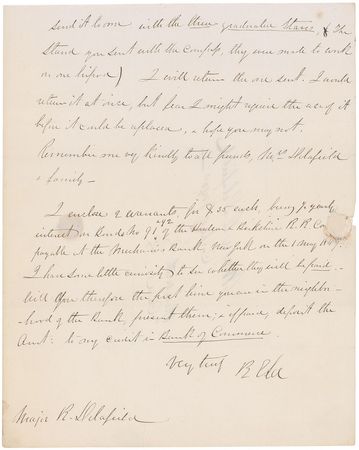 send it to me with the three graduated staves, & the
stand you sent with the compass, they were made to work
on one tripod) I will return the one sent. I would
return it at once, but fear I might require the use of it
before it could be replaced, & hope you may not.
Remember me very kindly to all friends, Mrs Delafield
& family—
I enclose 2 warrants, for $35 each, being ½ yearly
interest on Bonds No 91 & 92 of the Hudson & Berkshire R. R. Co
payable at the Mechanics Bank, New York on the 1 May
I have some little curiosity to see whether they will be paid.
Will you therefore the first time you are in the neighbor-
hood of the Bank, present them; & if paid, deposit the
Amt: to my credit in Bank of Commerce.
Very truly
R E Lee
Major R. Delafield